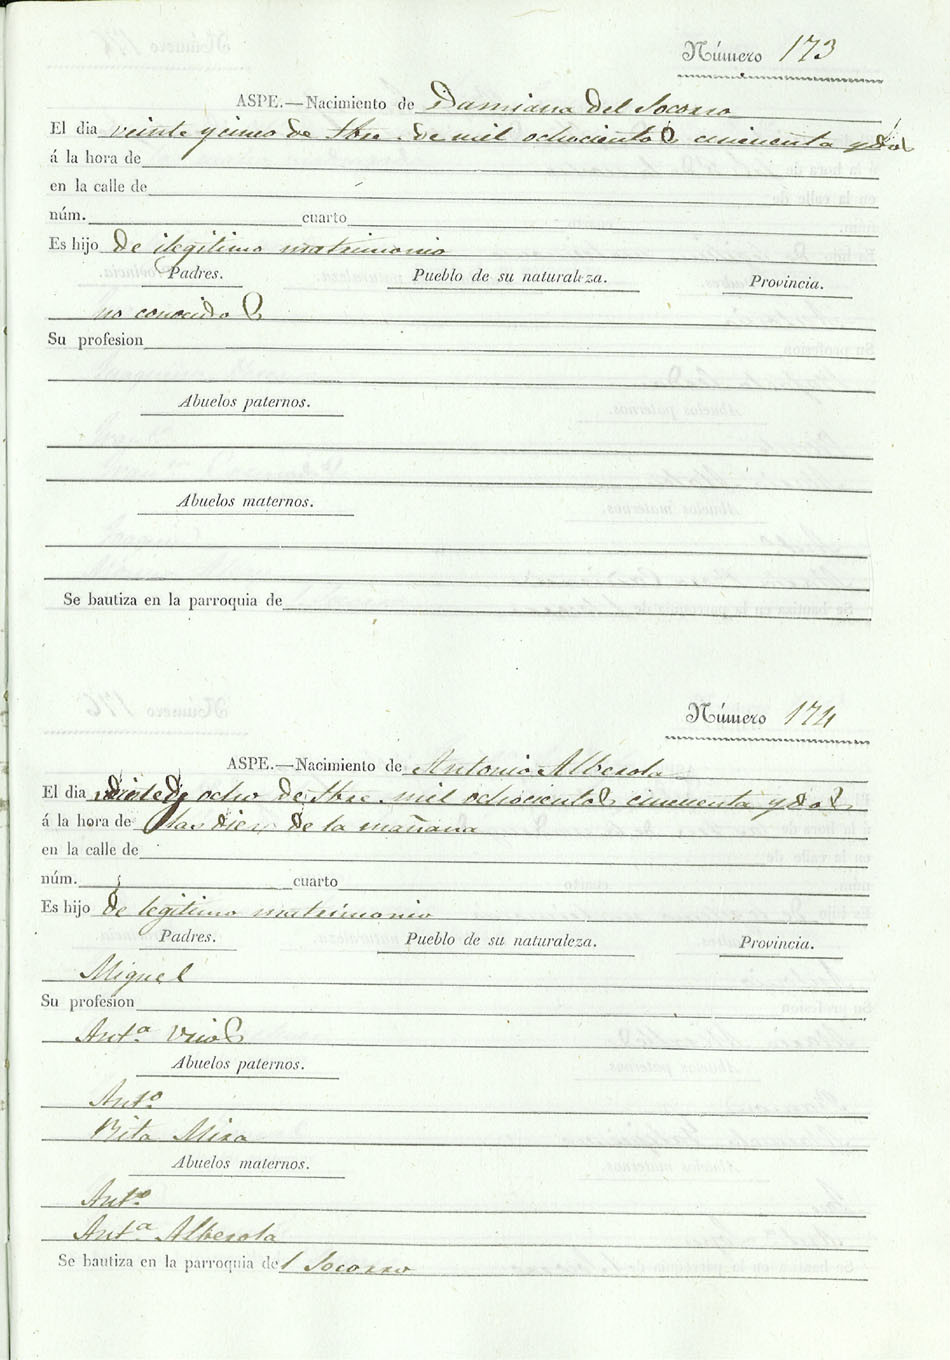 Número 173
ASPE.—Nacimiento de Damiana del Socorro
El dia veinte y cinco de Sbre. de mil ochocientos cincuenta y dos
á la hora de
en la calle de
núm. cuarto
Es hijo de ilegitimo matrimonio
Padres. Pueblo de su naturaleza. Provincia.
no conocidos
Su profesion
Abuelos paternos.
Abuelos maternos.
Se bautiza en la parroquia de
Número 174
ASPE.—Nacimiento de Antonio Alberola
El dia ocho de Sbre. mil ochocientos cincuenta y dos
á la hora de las diez de la mañana
en la calle de
núm. cuarto
Es hijo de legitimo matrimonio
Padres. Pueblo de su naturaleza. Provincia.
Miguel
Su profesion
Antª
Abuelos paternos.
Antº
Rita Mira
Abuelos maternos.
Antº
Antª Alberola
Se bautiza en la parroquia del Socorro